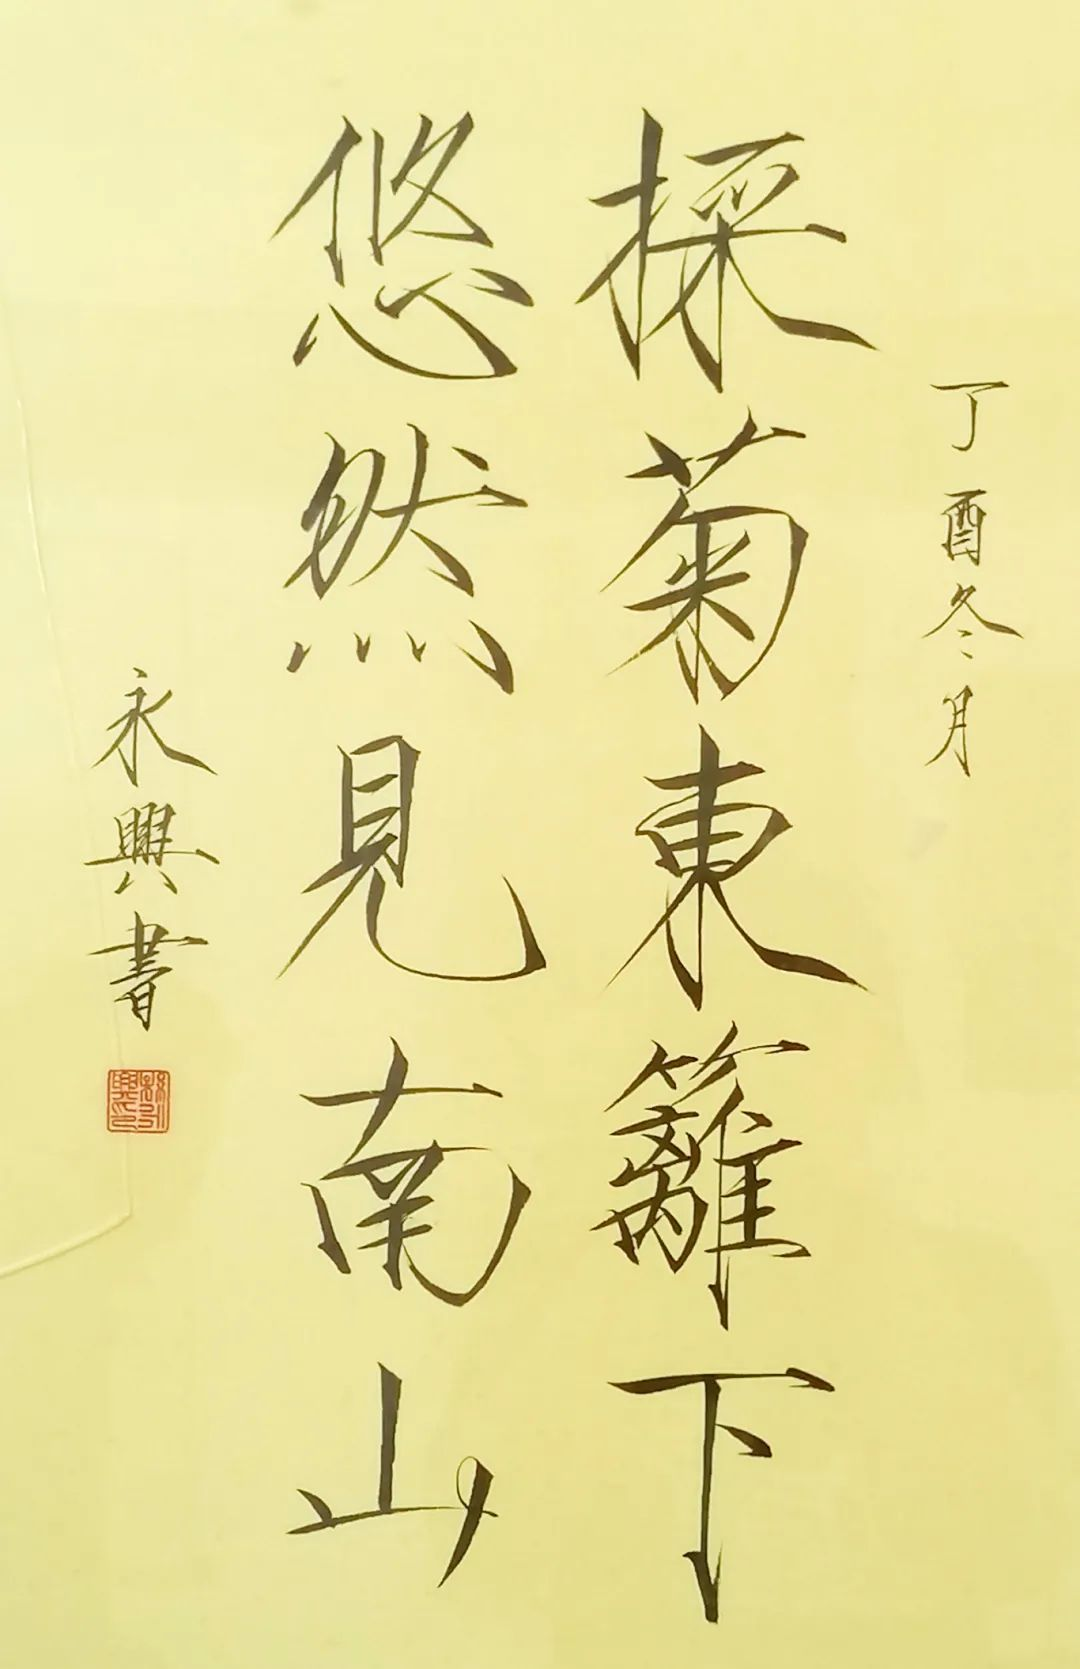 丁酉冬月
採菊東籬下
悠然見南山
永興書